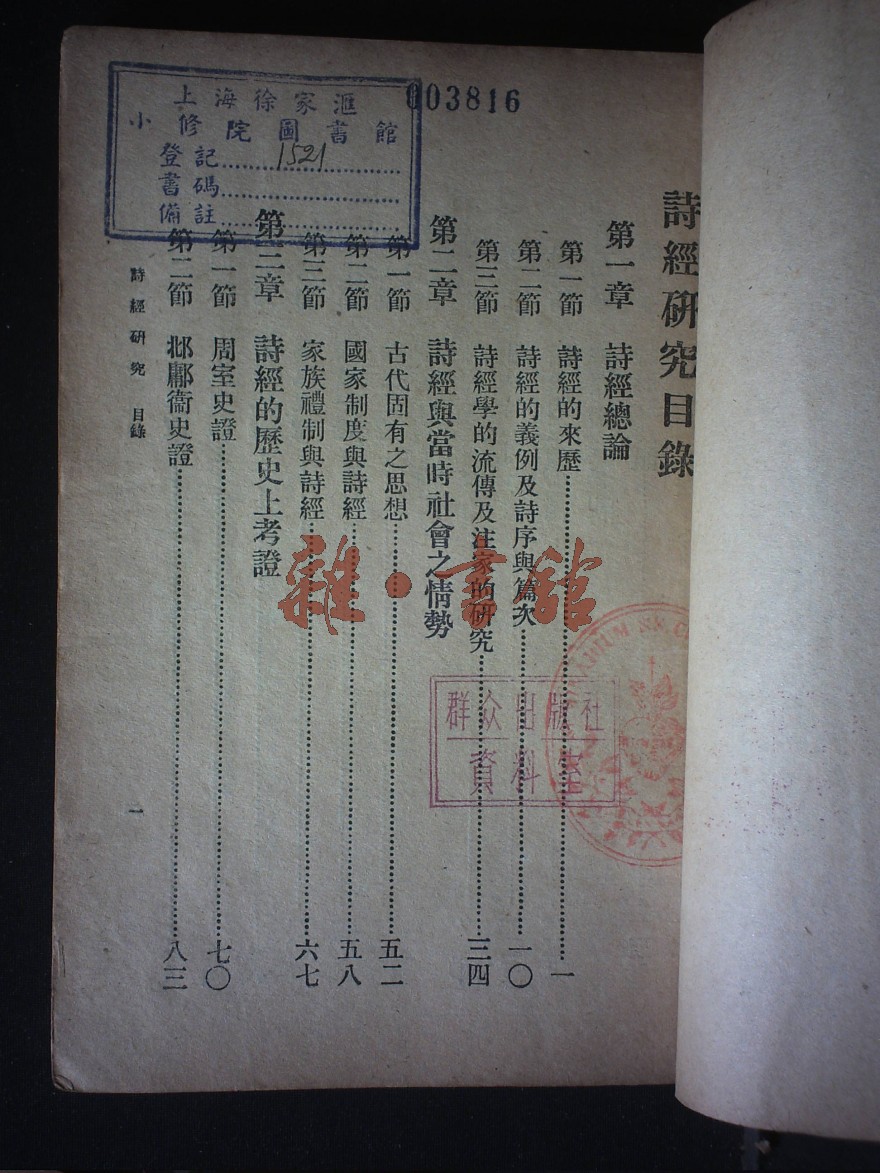 上海徐家滙
小修院圖書館
登記 1521
書碼
備註
003816
詩經研究目錄
第一章 詩經總論
第一節 詩經的來歷 一
第二節 詩經的義例及詩序與篇次 一〇
第三節 詩經學的流傳及注家的研究 三四
第二章 詩經與當時社會之情勢
第一節 古代固有之思想 五二
第二節 國家制度與詩經 五八
第三節 家族禮制與詩經 六七
第三章 詩經的歷史上考證
第一節 周室史證 七〇
第二節 邶鄘衞史證 八三
詩經研究 目錄
一
雜·書館
群众出版社
資料室